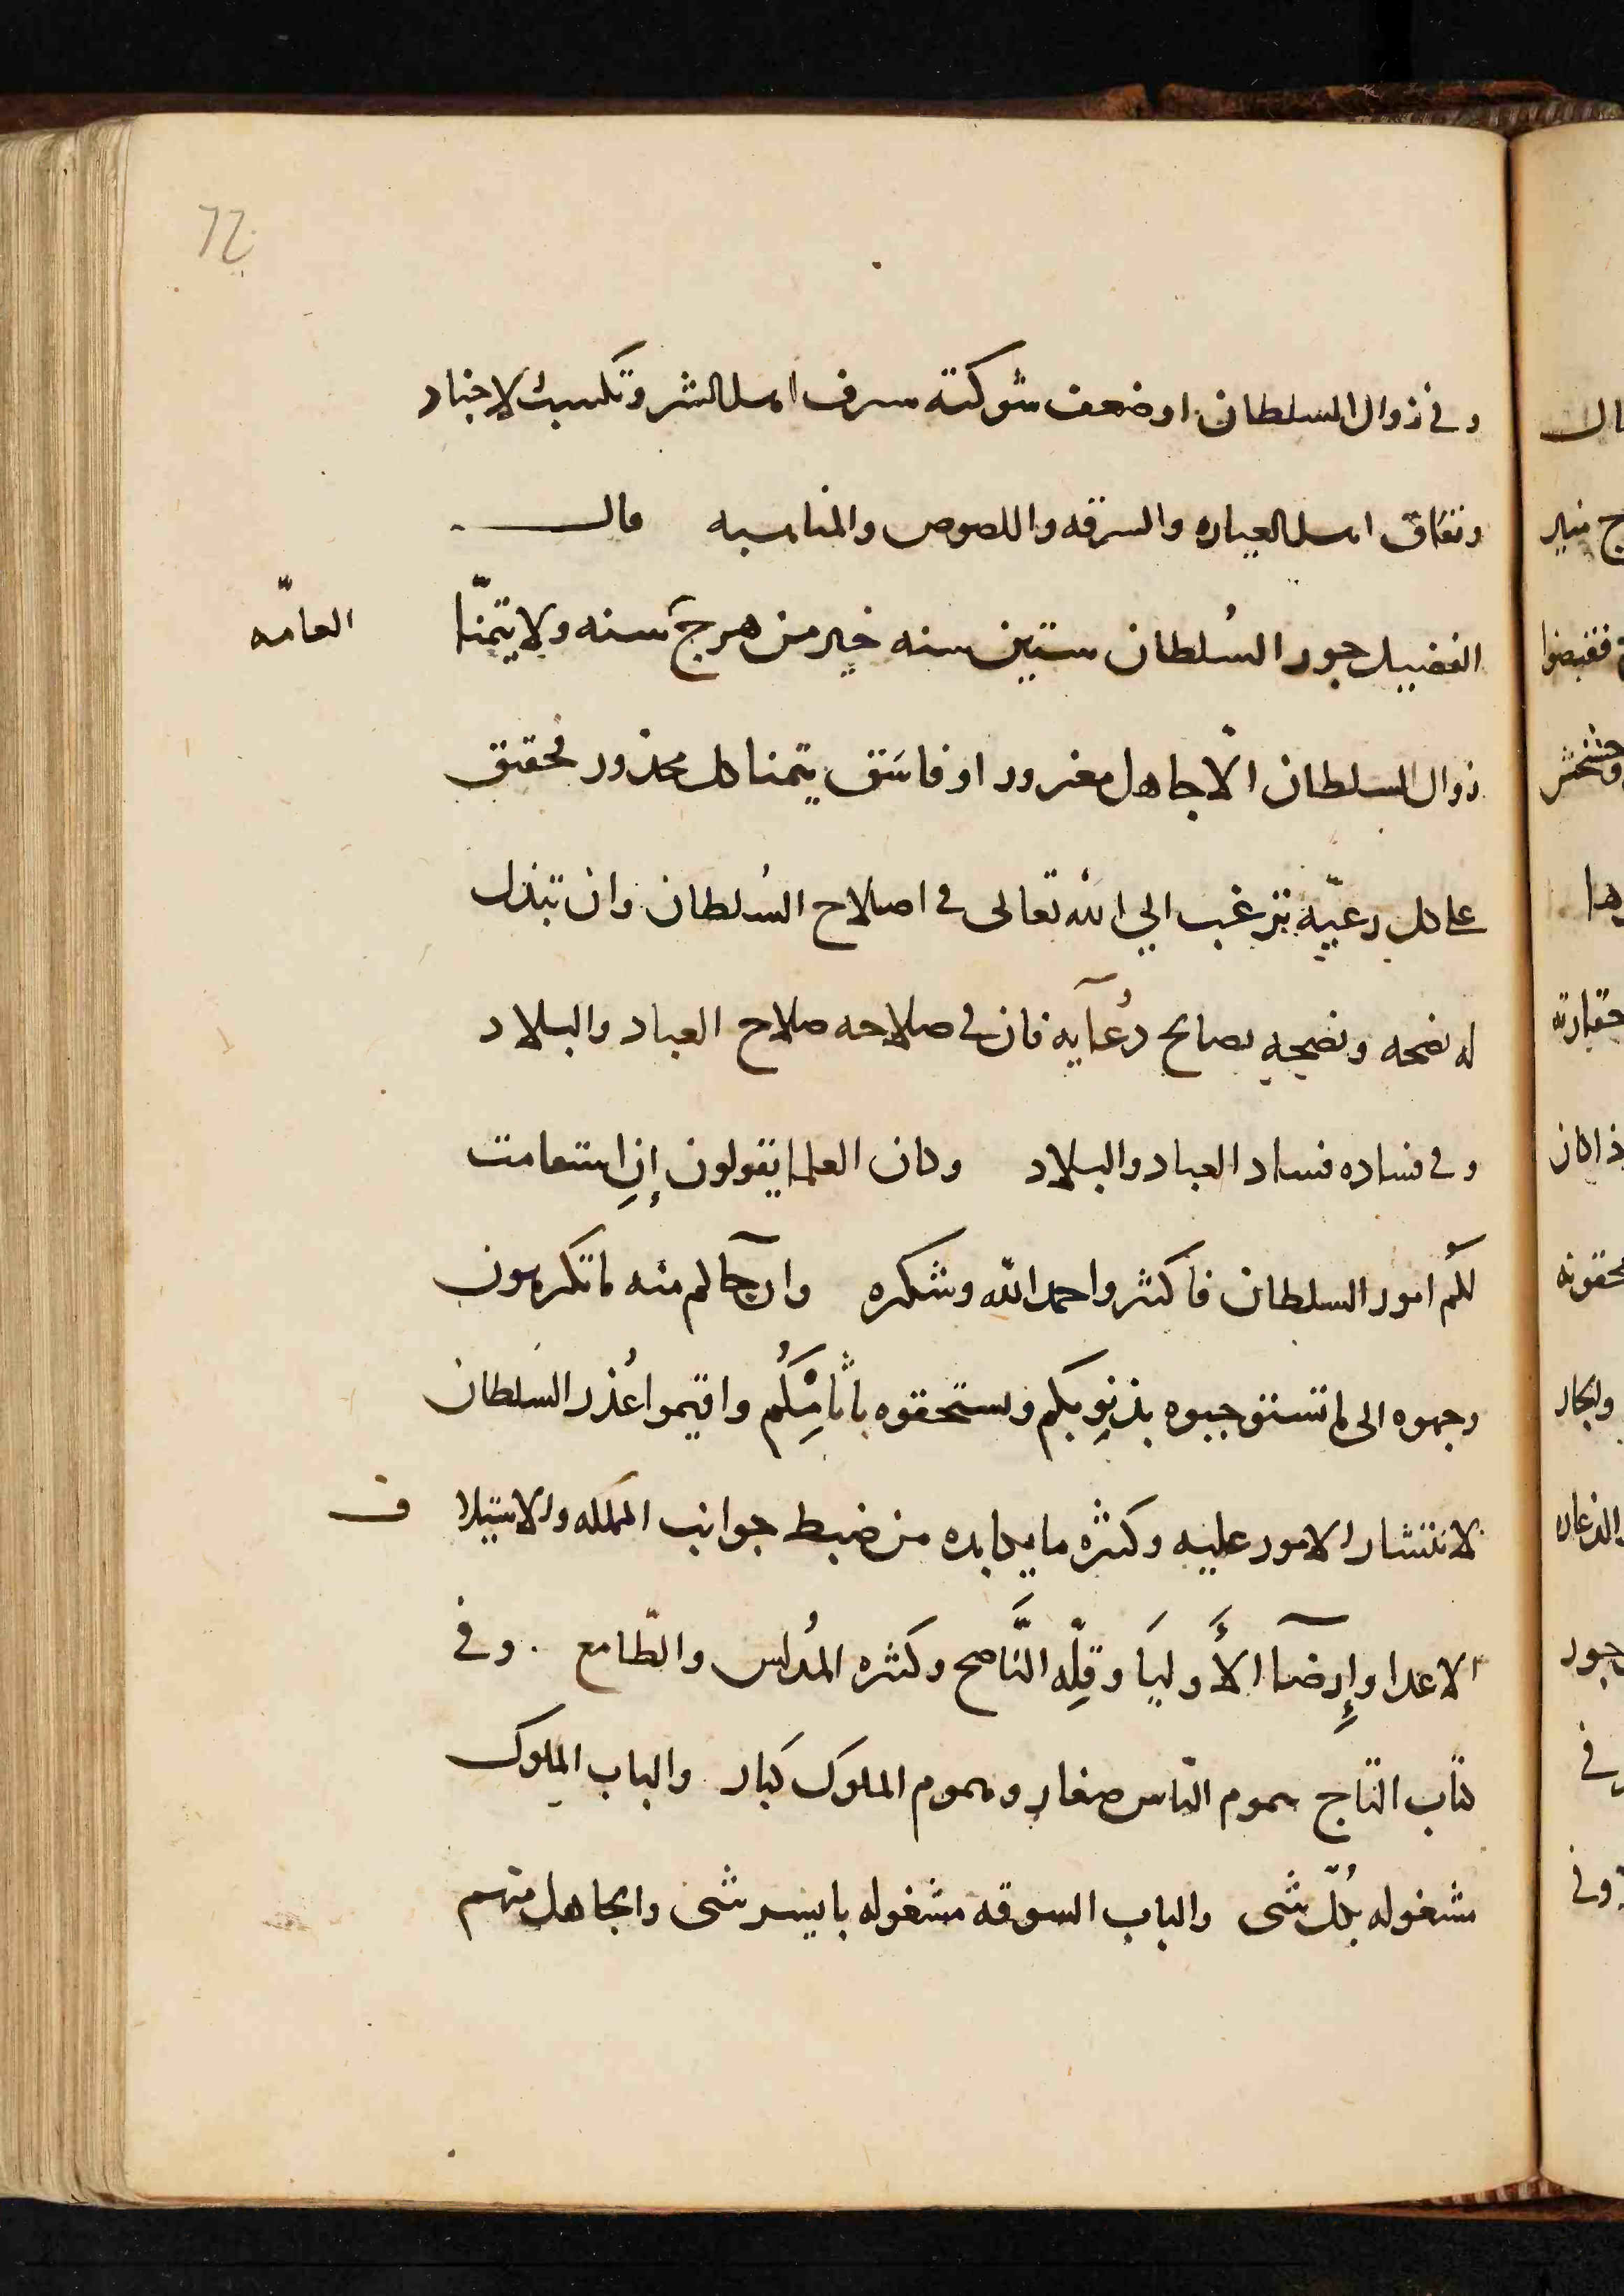 72
وفي زوال السلطان او ضعف شوكته سرف اهل الشر وتكسب الاجناد
ونفاق اهل العياره والسرقه واللصوص والمناهبه قال
الفضيل جور السُلطان ستين سنه خير من هرج سنه ولا يتمنّا العامّه
زوال السلطان الّا جاهل مغرور او فاسق يتمنا كل محذور فحقيق
على كل رعيّه ترغب الي الله تعالى في اصلاح السُلطان وان تبذل
له نصحه ونصحه بصالح دُعآيه فان في صلاحه صلاح العباد والبلاد
وفي فساده فساد العباد والبلاد وكان العلما يقولون إنِ استقامت
لكم امور السلطان فاكثروا حمد الله وشكره وان جاكم منه ما تكرهون
وجهوه الى ما تستوجبوه بذنوبكم وتستحقوه باثامِكُم واقيموا عُذر السلطان
لانتشار الامور عليه وكثره ما يكابده من ضبط جوانب المملكه والاستيلاف
الاعدا وإِرضآ الأَوليَا وقِلّه النَّاصح وكثره المُدلس والطّامع . وفي
كتاب التاج هموم الناس صغار وهموم الملوك كبار والباب الملوك
مشغوله بكُلّ شى والباب السوقه مشغوله بايسر شى والجاهل منهم